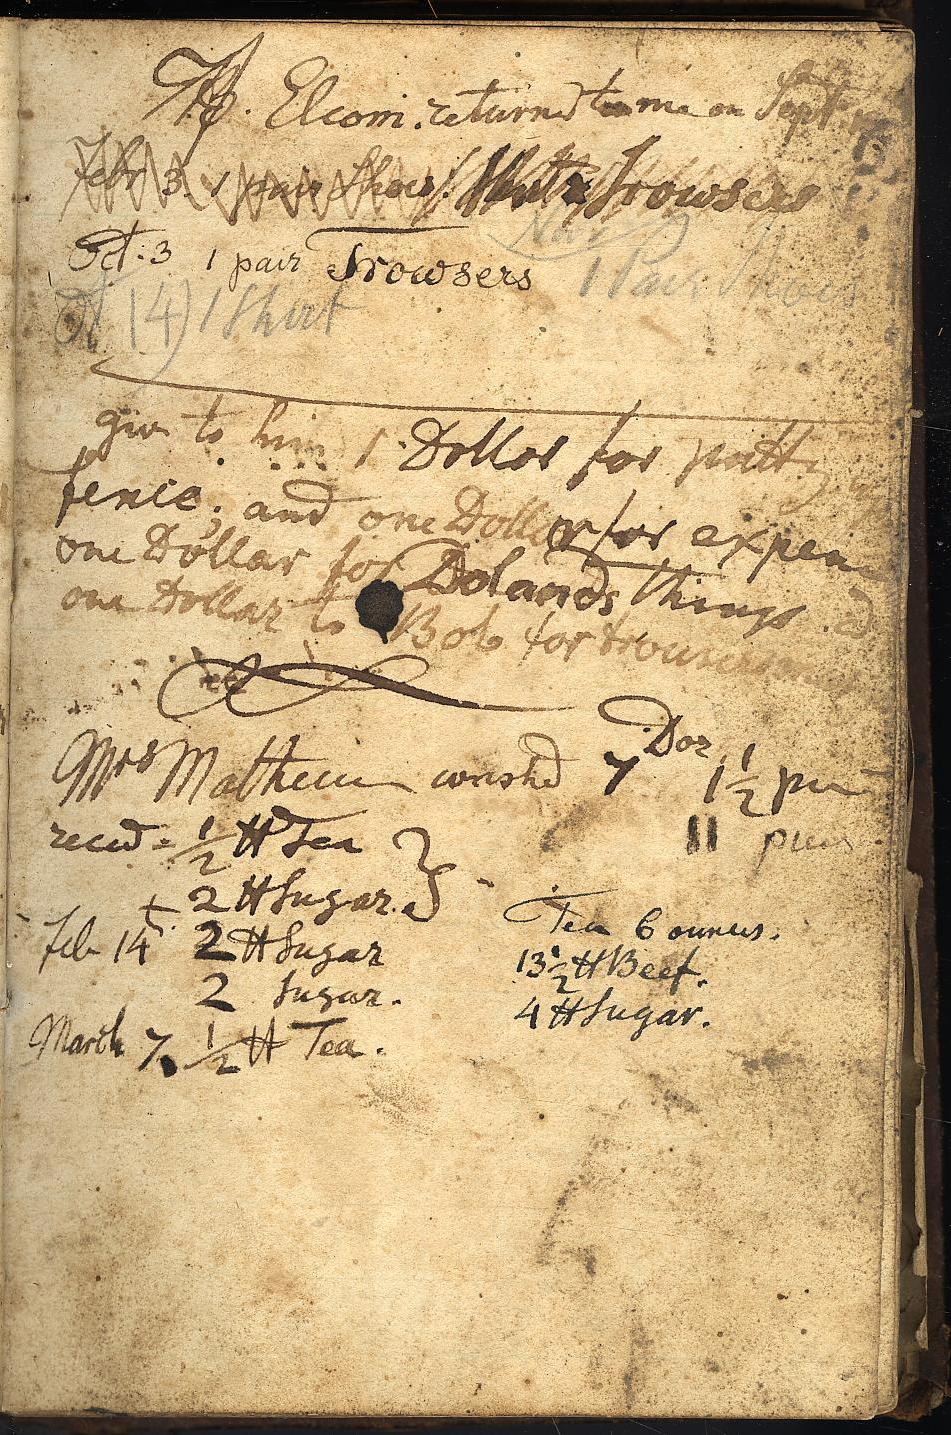 Elcom. returned to me on Sept.
Febr 3. 1 pair Shoes Trowsers
Nov
Oct. 3 1 pair Trowsers 1 Pair Shoes
(4) 1 Shirt
give to him 1 Dollar for putting
fence; and one Dollar for expen
one Dollar for Dolands things
one Dollar to Bob for
Mrs Mathew washed 7 Doz 1 1/2
recd - 1/2 ℔ Tea 11
+ 2 ℔ Sugar.
Feb 14 2 ℔ Sugar
2 Sugar.
March 7. 1/2 ℔ Tea.
Tea 6 ounces.
13 1/2 ℔ Beef.
4 ℔ Sugar.